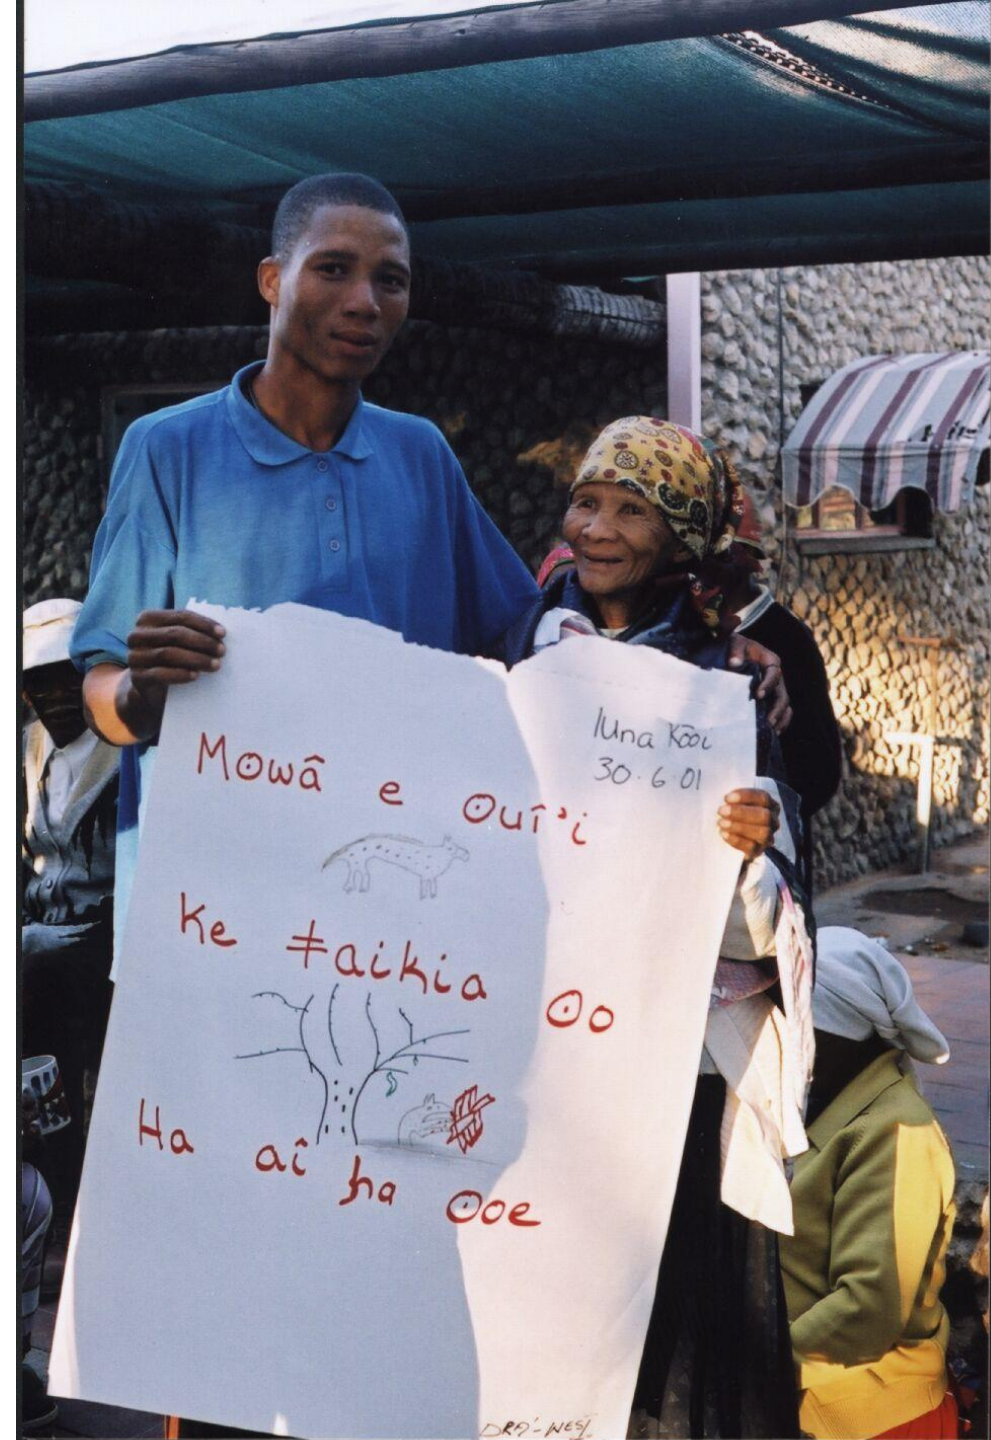 ǀUna Kõoi
30·6·01
Mowâ e ʘuî'i
Ke ǂaikia ʘo
Ha aî ha ʘoe